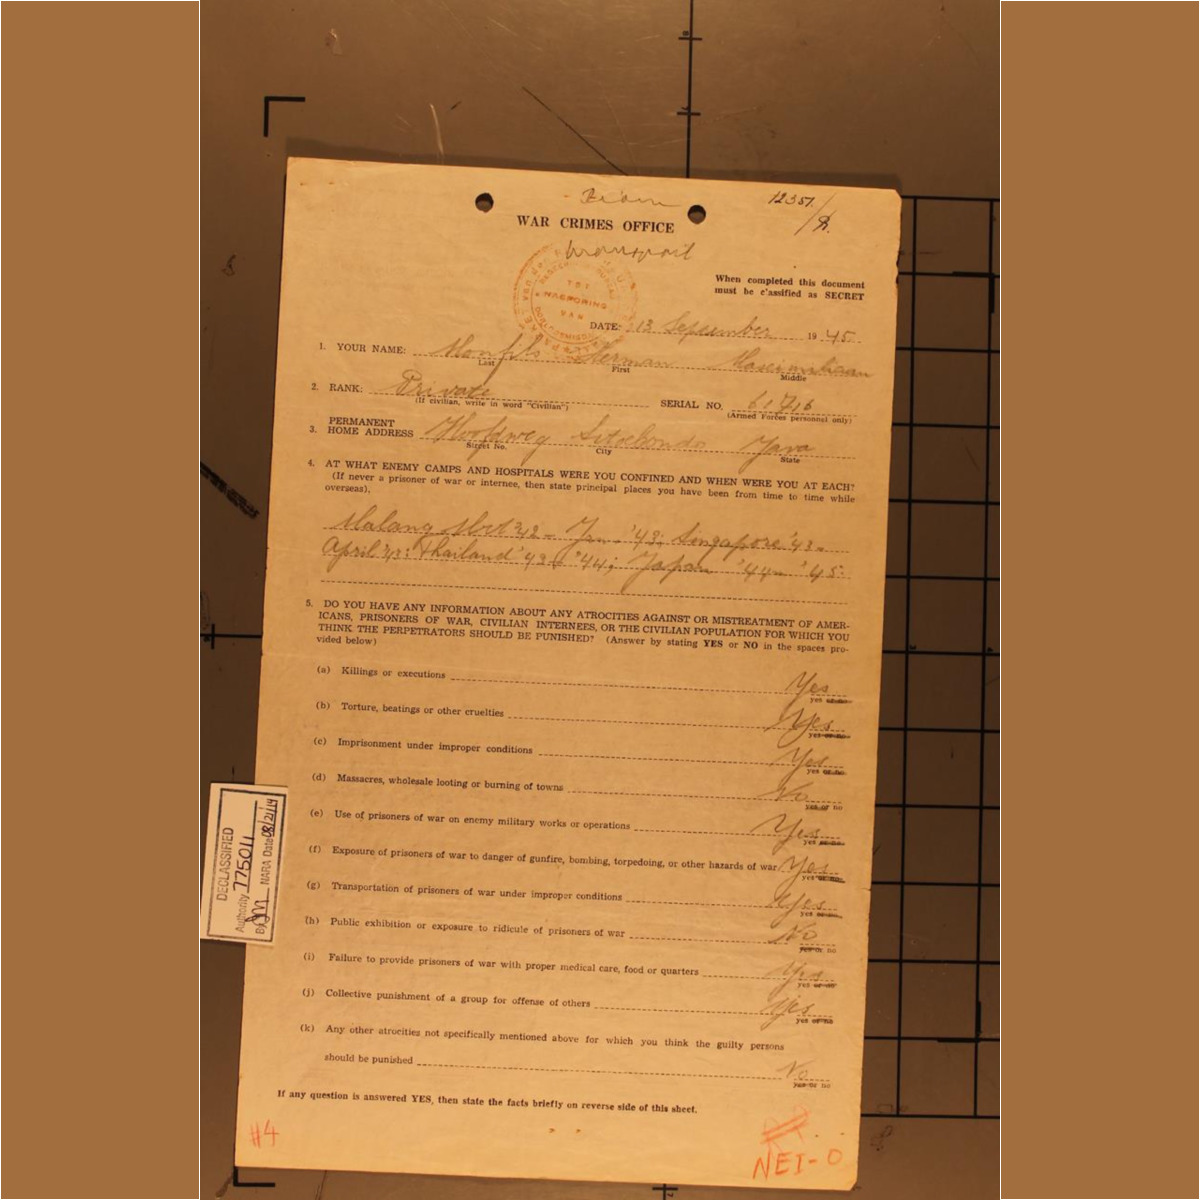 12351
WAR CRIMES OFFICE
transport
When completed this document
must be c'assified as SECRET
DATE: 13 September 1945
1. YOUR NAME: Monfils Herman
Last First Middle
2. RANK: Private SERIAL NO.
(If civilian, write in word "Civilian") (Armed Forces personnel only)
3. PERMANENT
HOME ADDRESS Hoofdweg Sitoebondo Java
Street No. City State
4. AT WHAT ENEMY CAMPS AND HOSPITALS WERE YOU CONFINED AND WHEN WERE YOU AT EACH?
(If never a prisoner of war or internee, then state principal places you have been from time to time while
overseas).
Malang '42 - Jan. '43; Singapore '43 -
April '43; Thailand '43 - '44; Japan '44 - '45.
5. DO YOU HAVE ANY INFORMATION ABOUT ANY ATROCITIES AGAINST OR MISTREATMENT OF AMER-
ICANS, PRISONERS OF WAR, CIVILIAN INTERNEES, OR THE CIVILIAN POPULATION FOR WHICH YOU
THINK THE PERPETRATORS SHOULD BE PUNISHED? (Answer by stating YES or NO in the spaces pro-
vided below)
(a) Killings or executions Yes
yes or no
(b) Torture, beatings or other cruelties Yes
yes or no
(c) Imprisonment under improper conditions Yes
yes or no
(d) Massacres, wholesale looting or burning of towns No
yes or no
(e) Use of prisoners of war on enemy military works or operations Yes
yes or no
(f) Exposure of prisoners of war to danger of gunfire, bombing, torpedoing, or other hazards of war Yes
yes or no
(g) Transportation of prisoners of war under improper conditions Yes
yes or no
(h) Public exhibition or exposure to ridicule of prisoners of war No
yes or no
(i) Failure to provide prisoners of war with proper medical care, food or quarters Yes
yes or no
(j) Collective punishment of a group for offense of others Yes
yes or no
(k) Any other atrocities not specifically mentioned above for which you think the guilty persons
should be punished No
yes or no
If any question is answered YES, then state the facts briefly on reverse side of this sheet.
#4
NEI-O
DECLASSIFIED
Authority 775011
By JM NARA Date 08/21/14